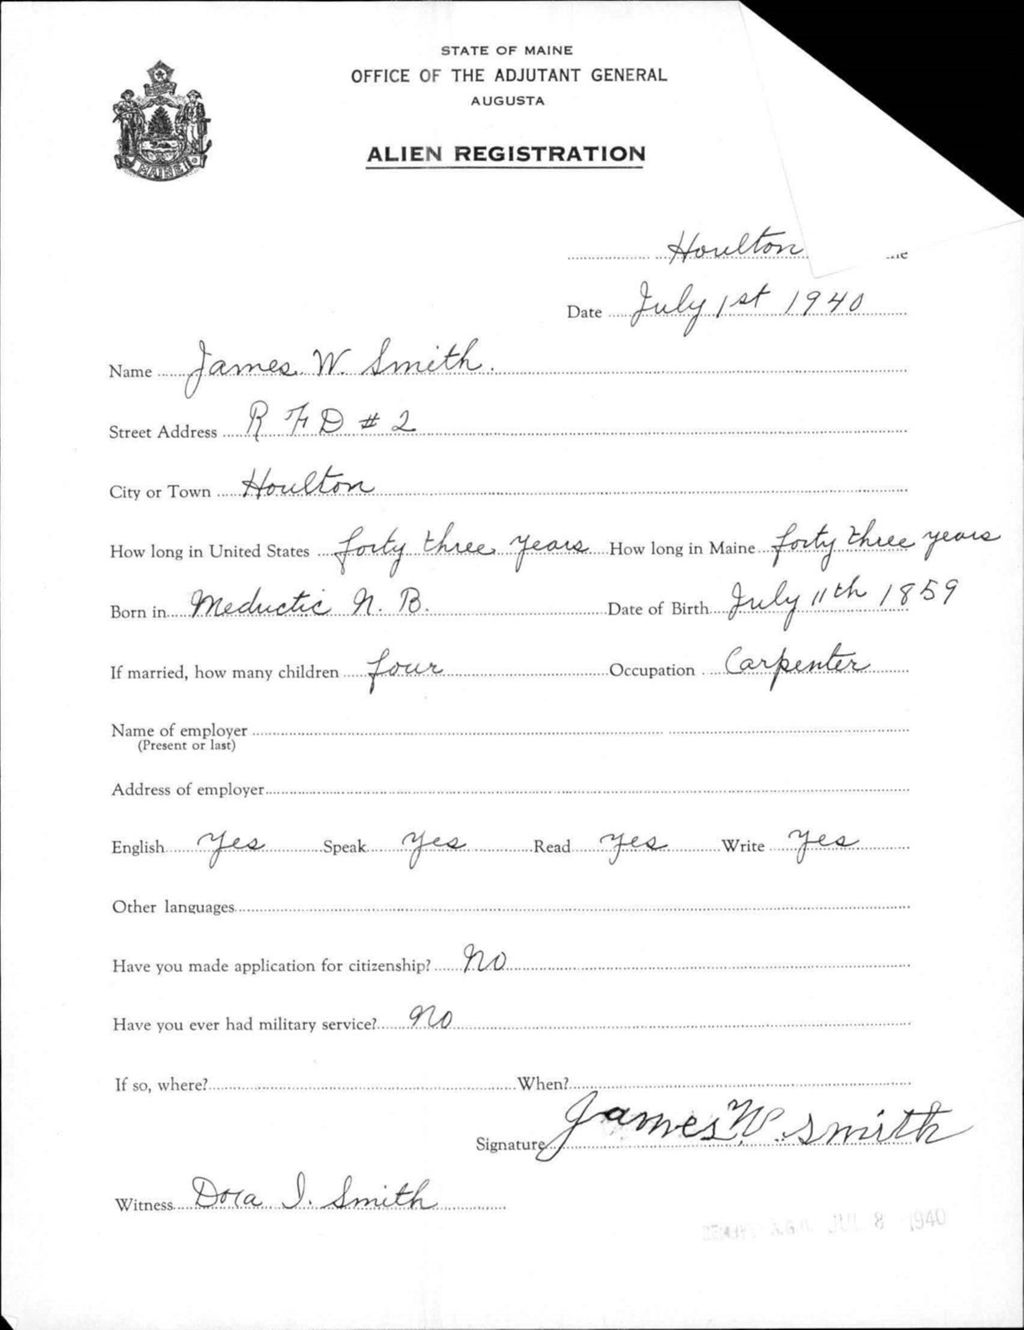 STATE OF MAINE
OFFICE OF THE ADJUTANT GENERAL
AUGUSTA
ALIEN REGISTRATION
MAINE
Houlton
Date July 1st 1940
Name James W. Smith.
Street Address R F D # 2
City or Town Houlton
How long in United States forty three years How long in Maine forty three years
Born in Meductic N. B. Date of Birth July 11th 1859
If married, how many children four Occupation Carpenter
Name of employer
(Present or last)
Address of employer
English yes Speak yes Read yes Write yes
Other languages
Have you made application for citizenship? No
Have you ever had military service? No
If so, where? When?
Signature James W Smith
Witness Dora I. Smith
JUL 8 1940